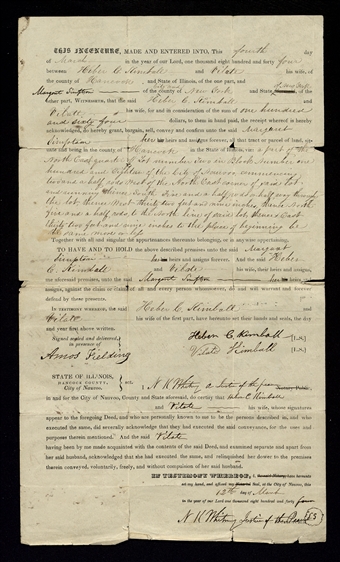 THIS INDENTURE, MADE AND ENTERED INTO, This fourth day
of March in the year of our Lord, one thousand eight hundred and forty four
between Heber C. Kimball and Vilate his wife, of
the county of Hancock and State of Illinois, of the one part, and
Margaret of the county of New York and State
other part, WITNESSETH, that the said Heber C. Kimball and
Vilate his wife, for and in consideration of the sum of one hundred
and sixty four dollars, to them in hand paid, the receipt whereof is hereby
acknowledged, do hereby grant, bargain, sell, convey and confirm unto the said Margaret
her heirs and assigns forever, all that tract or parcel of land,
situate and being in the county of Hancock in the State of Illinois, viz: a part of the
North East quarter of Lot number two in Block number one
hundred and Eighteen of the City of Nauvoo commencing
two and a half rods West of the North East corner of said lot
and running thence South five and a half rods
the lot thence West thirty two feet and nine inches thence North
five and a half rods to the North line of said lot thence East
thirty two feet and nine inches to the place of beginning be
the same more or less
Together with all and singular the appurtenances thereunto belonging, or in anywise appertaining.
TO HAVE AND TO HOLD the above described premises unto the said Margaret
her heirs and assigns forever. And the said Heber
C. Kimball and Vilate his wife, their heirs and assigns,
the aforesaid premises, unto the said Margaret her heirs and
assigns, against the claim or claims of all and every person whomsoever, do and will warrant and forever
defend by these presents.
IN TESTIMONY WHEREOF, the said Heber C. Kimball and
Vilate his wife of the first part, have hereunto set their hands and seals, the day
and year first above written.
Signed sealed and delivered,
in presence of
Amos Fielding
Heber C. Kimball [L.S.]
Vilate Kimball [L.S.]
STATE OF ILLINOIS,
HANCOCK COUNTY, sct.
City of Nauvoo.
I, N. K. Whitney a Justice of the peace
in and for the City of Nauvoo, County and State aforesaid, do certify that Heber C. Kimball
and Vilate his wife, whose signatures
appear to the foregoing Deed, and who are personally known to me to be the persons described in, and who
executed the same, did severally acknowledge that they had executed the said conveyance, for the uses and
purposes therein mentioned. And the said Vilate
having been by me made acquainted with the contents of the said Deed, and examined separate and apart from
her said husband, acknowledged that she had executed the same, and relinquished her dower to the premises
therein conveyed, voluntarily, freely, and without compulsion of her said husband.
IN TESTIMONY WHEREOF, I, have hereunto
set my hand, and affixed my Seal, at the City of Nauvoo, this
12th day March
in the year of our Lord one thousand eight hundred and forty four
N. K. Whitney Justice of the Peace